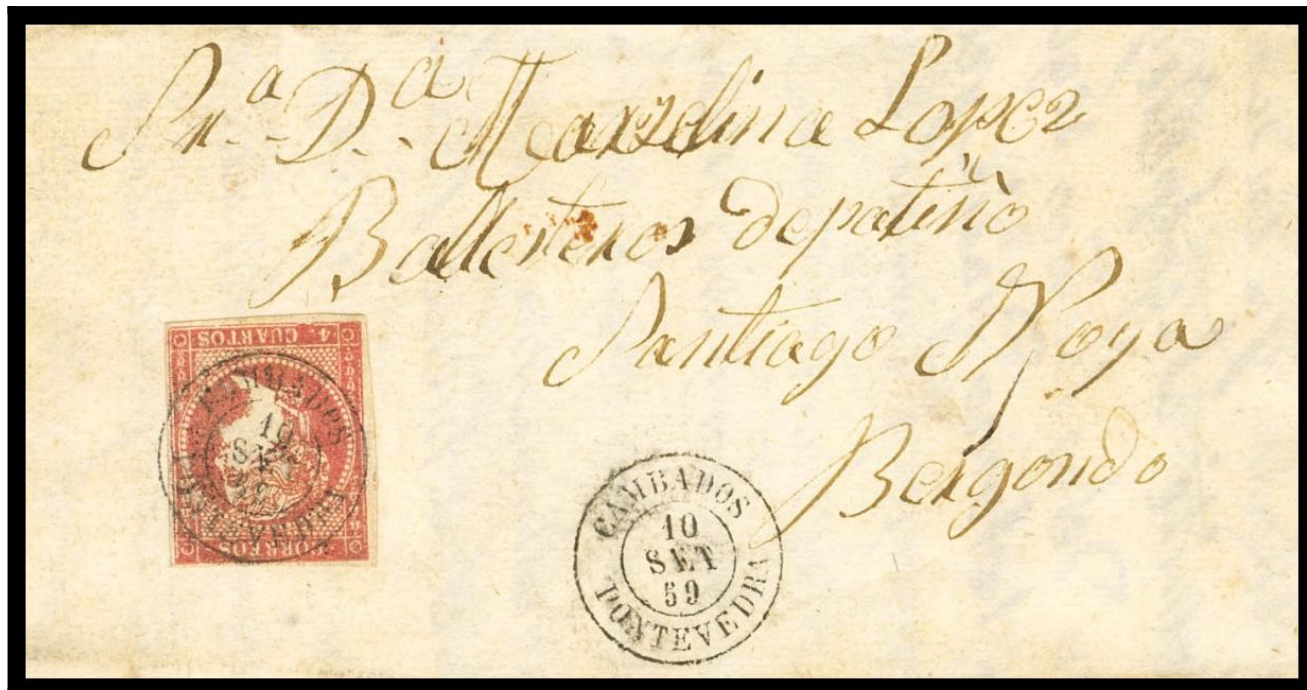 Sra. Da. Marzelina Lopez
Ballesteros de patiño
Santiago Noya
Bergondo
4 CUARTOS
CORREOS
CAMBADOS
10
SET
PONTEVEDRA
CAMBADOS
10
SET
59
PONTEVEDRA